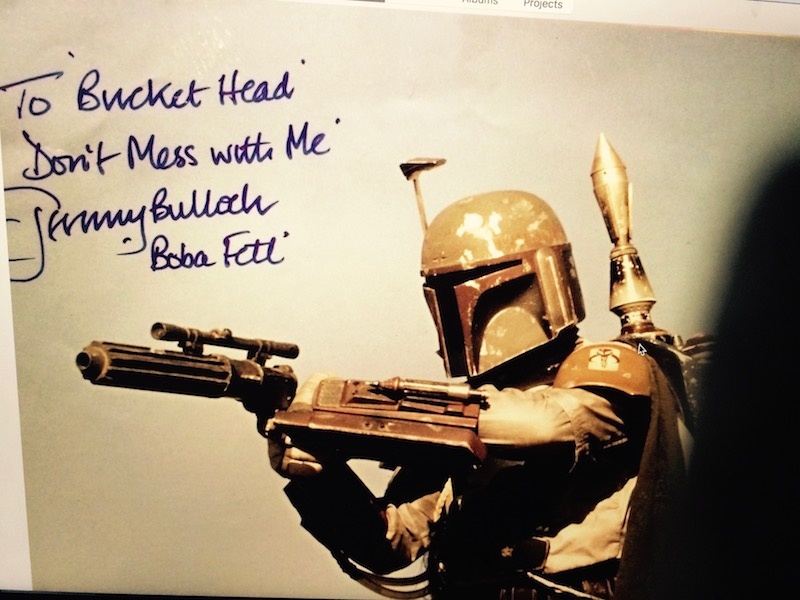 Albums Projects
To 'Bucket Head'
'Don't Mess with Me'
Jeremy Bulloch
Boba Fett'